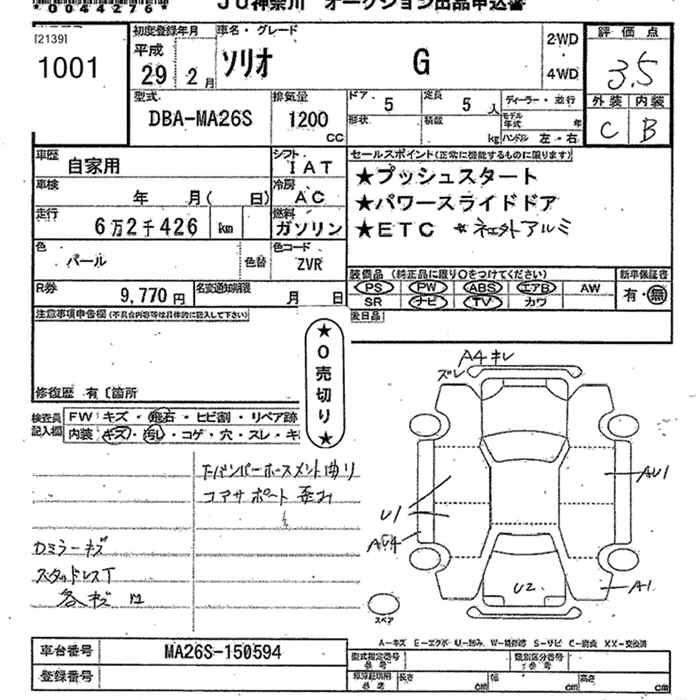 *00442776*
JU神奈川 オークション出品申込書
[2139]
1001
初度登録年月
平成
29 2月
車名・グレード
ソリオ G
2WD
4WD
評価点
3.5
型式
DBA-MA26S
排気量
1200
CC
ドア
5
定員
5人
形状
積載
kg
ディーラー・並行
モデル年式 年
ハンドル 左・右
外装 内装
C B
車歴
自家用
シフト
IAT
セールスポイント(正常に機能するものに限ります)
★プッシュスタート
★パワースライドドア
★ETC
車検
年 月( 日)
冷房
AC
走行
6万2千426 km
燃料
ガソリン
色
パール
色替
色コード
ZVR
R券
9,770円
名変通知期限
月 日
装備品(純正品に限り○をつけてください)
PS PW ABS エアB AW
SR ナビ TV カワ
新車保証書
有・無
注意事項申告欄(不具合内容等は具体的に記入して下さい)
後日品
★0売切り★
修復歴 有〔箇所
検査員記入欄
FW キズ・飛石・ヒビ割・リペア跡
内装 キズ・汚レ・コゲ・穴・スレ・キ
A4 キレ
ズレ
コアサポート
カラミラーキズ
スタッドレスT
各キズ
U1
AU1
A1
U2
スペア
A-キズ E-エクボ U-凹み W-補修跡 S-サビ C-腐食 XX-交換済
車台番号
MA26S-150594
登録番号
型式指定番号
参考
類別区分番号
参考
長さ cm
幅 cm
高さ cm